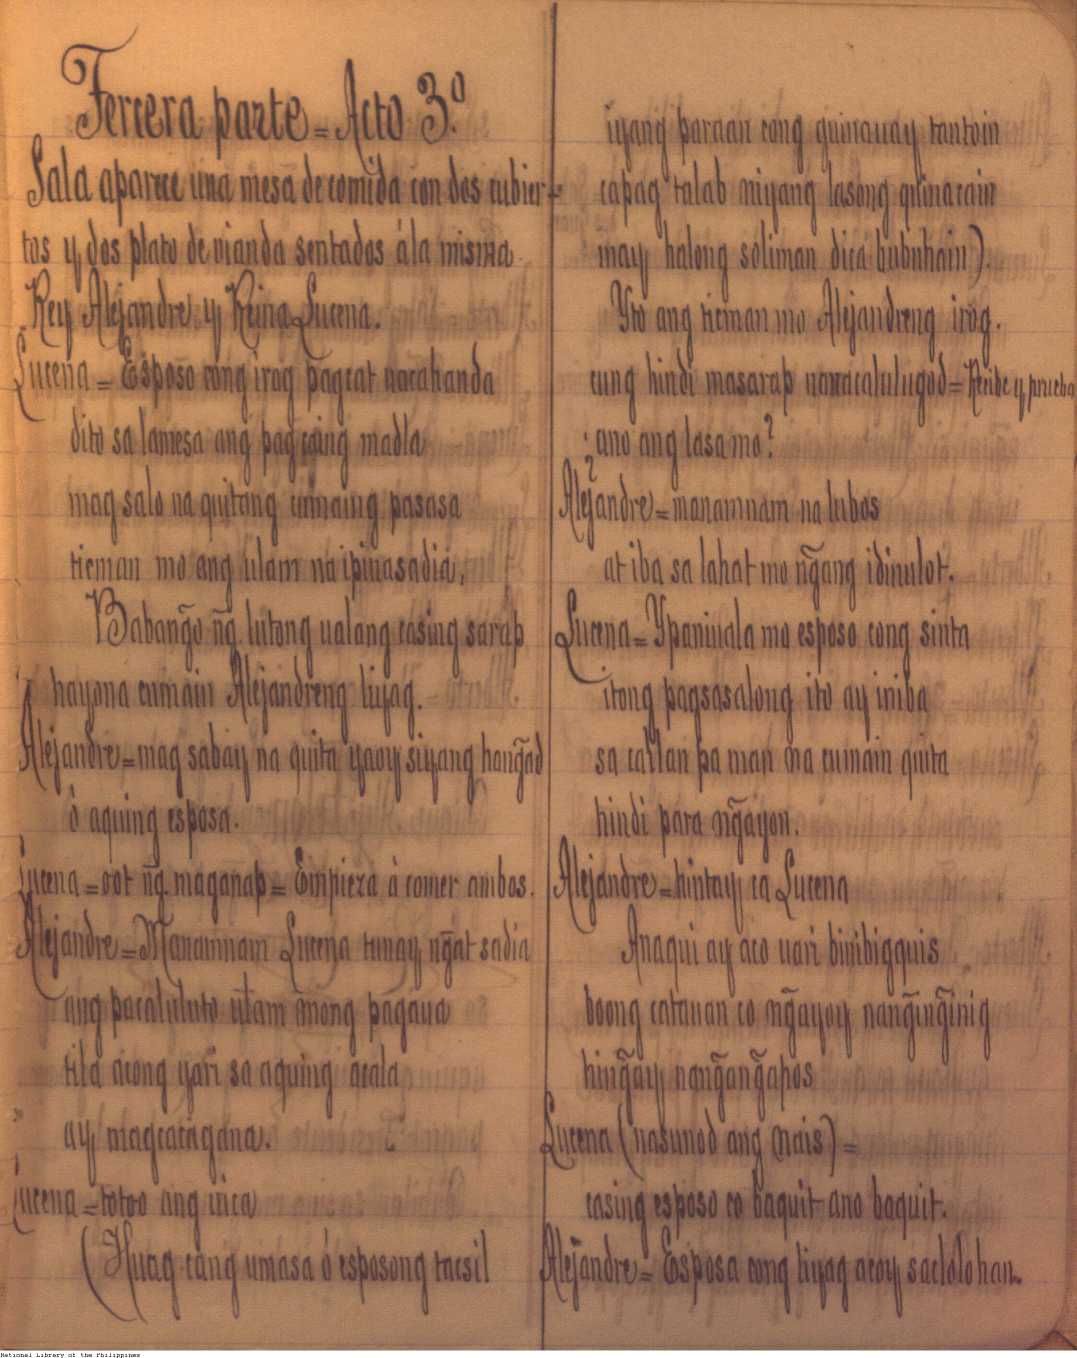 Tercera parte = Acto 3.º
Sala aparece una mesa de comida con dos cubier-
tos y dos plato de vianda sentados ála misma
Rey Alejandre y Reina Lucena.
Lucena = Esposo cong irog pagcat nacahanda
dito sa lamesa ang pagcaing madla
mag salo na quitang cumaing pasasa
ticman mo ang ulam na ipinasadia,
Baban͠go n͠g lutong ualang casing sarap
hayona cumain Alejandreng liyag.
Alejandre = mag sabay na quita yaoy siyang han͠gad
ò aquing esposa.
Lucena = oot n͠g maganap = Empieza à comer ambos.
Alejandre = Manamnam Lucena tunay n͠gat sadia
ang pacaluluto ulam mong pagaua
tila acong yari sa aquing acala
ay magcacagana.
Lucena = totoo ang uica
(Huag cang umasa ò esposong tacsil
iyang paraan cong guinauay tantoin
capag talab niyang lasong quinacain
may halong soliman dica bubuhain).
Yto ang ticman mo Alejandreng irog.
cung hindi masarap nacalulugod = Recibe y prueba
¿ano ang lasa mo?
Alejandre = manamnam na lubos
at iba sa lahat mo n͠gang idinulot.
Lucena = Ypaniuala mo esposo cong sinta
itong pagsasalong ito ay iniba
sa cailan pa man na cumain quita
hindi para n͠gayon.
Alejandre = hintay ca Lucena
Anaqui ay aco uari binibigquis
boong catauan co n͠gayoy nan͠gin͠ginig
hin͠gay nan͠gan͠gapos
Lucena (nasunod ang nais) =
casing esposo co baquit ano baquit.
Alejandre = Esposa cong liyag acoy saclolohan.
National Library of the Philippines